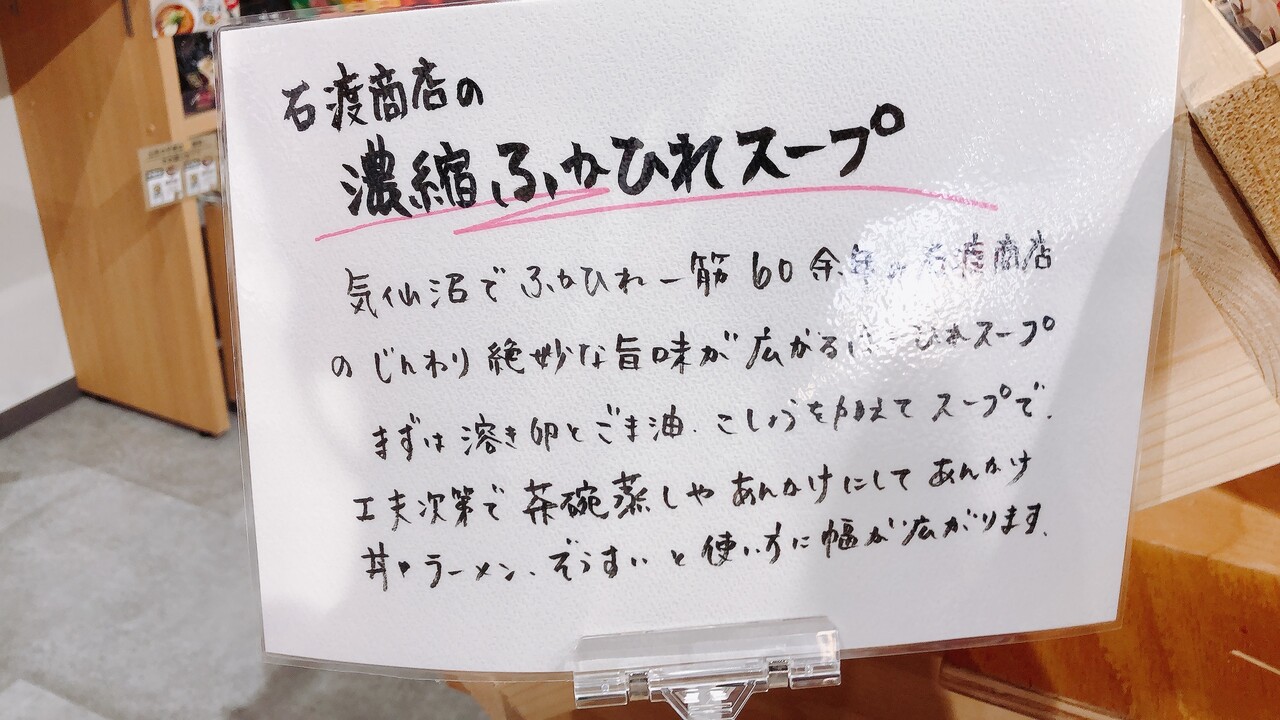 石渡商店の
濃縮ふかひれスープ
気仙沼でふかひれ一筋60余年の石渡商店
のじんわり絶妙な旨味が広がるふかひれスープ
まずは溶き卵とごま油、こしょうを加えてスープで、
工夫次第で茶碗蒸しやあんかけにしてあんかけ
丼やラーメン、ぞうすいと使い方に幅が広がります、